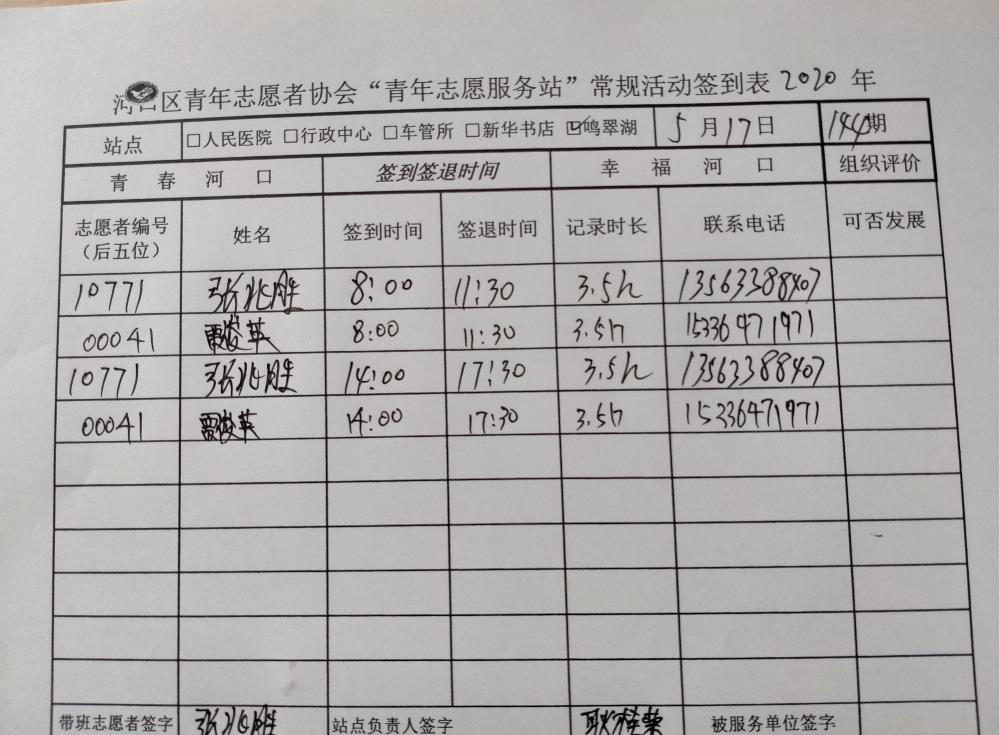 河口区青年志愿者协会“青年志愿服务站”常规活动签到表 2020 年
站点 □人民医院 □行政中心 □车管所 □新华书店 ☑鸣翠湖 5月17日 144期
青春河口 签到签退时间 幸福河口 组织评价
志愿者编号（后五位） 姓名 签到时间 签退时间 记录时长 联系电话 可否发展
10771 张兆胜 8:00 11:30 3.5h 13563388407
00041 贾俊英 8:00 11:30 3.5h 15336471971
10771 张兆胜 14:00 17:30 3.5h 13563388407
00041 贾俊英 14:00 17:30 3.5h 15336471971
带班志愿者签字 张兆胜 站点负责人签字 耿桂荣 被服务单位签字